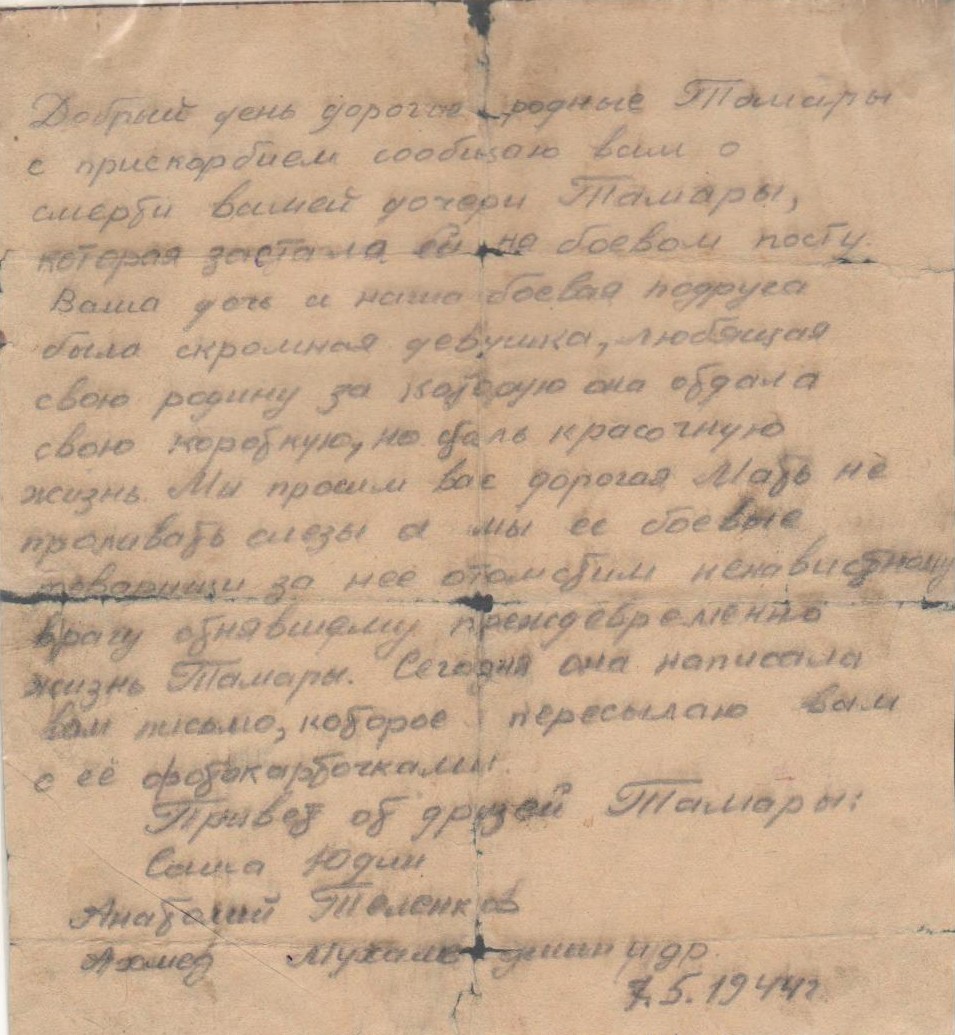 Добрый день дорогие родные Тамары
с прискорбием сообщаю вам о
смерти вашей дочери Тамары,
которая застала её на боевом посту.
Ваша дочь и наша боевая подруга
была скромная девушка, любящая
свою родину за которую она отдала
свою короткую, но столь красочную
жизнь. Мы просим вас дорогая Мать не
проливать слезы а мы ее боевые
товарищи за неё отомстим ненавистному
врагу отнявшему преждевременно
жизнь Тамары. Сегодня она написала
вам письмо, которое пересылаю вам
с её фотокарточками.
Привет от друзей Тамары:
Саша Юдин
Анатолий Теленков
Ахмед и др.
7.5.1944г